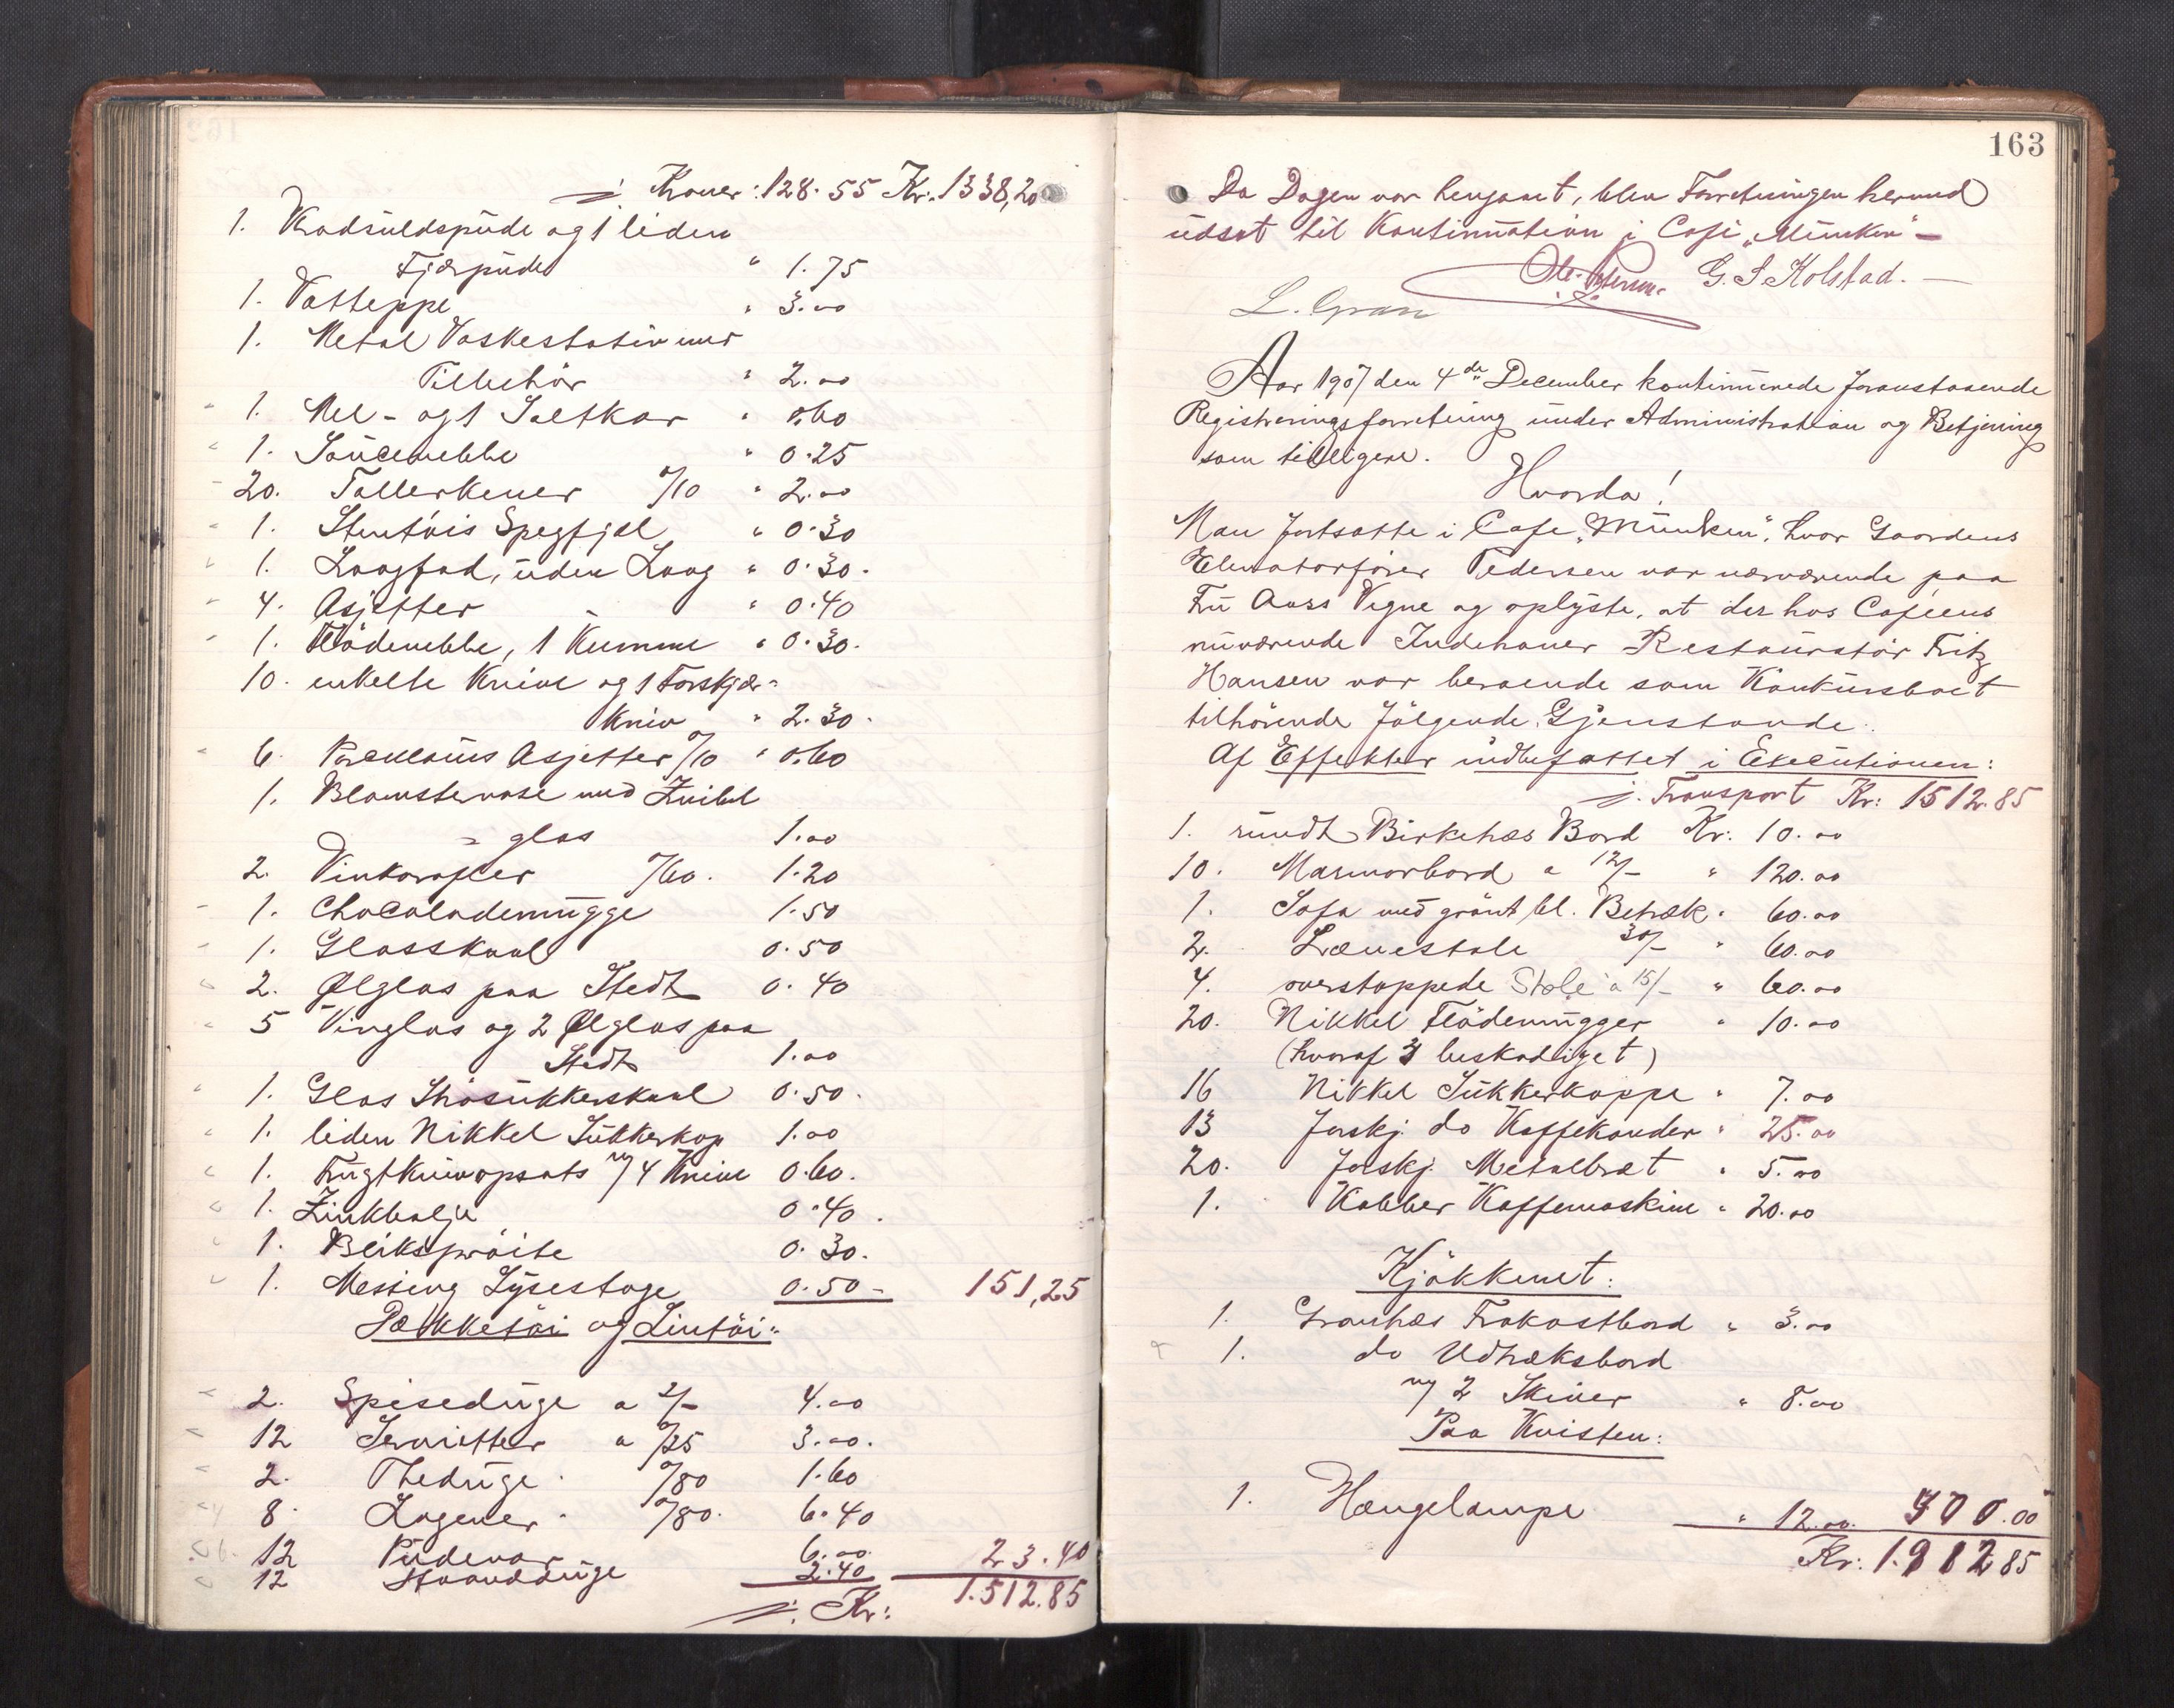 Kroner: 128.55 Kr. 1338,20
1. Krøduldspude og 1 liden
Fjærpude " 1.75
1. Vatteppe " 3.00
1. Metal Vaskestativ med
Tilbehör " 2.00
1. Mel- og 1 Saltkar " 0.60
1. Saucenebbe " 0.25
20. Tallerkener 0/10 " 2.00
1. Stentöis Spegfjæl " 0.30
1. Laagfad, uden Laag " 0.30.
4. Asjetter " 0.40
1. Flödenebbe, 1 Kumme " 0.30.
10. enkelte Knive og 1 Forskjær-
kniv " 2.30.
6. Porcelains Asjetter 0/10 " 0.60
1. Blomstervase med Zwibel
= glas 1.00
2. Vinkarafler 0/60. 1.20
1. Chocolademugge 1.50
1. Glasskaal 0.50
2. Ølglas paa Stedt 0.40
5 Vinglas og 2 Ølglas paa
Stedt 1.00
1. Glas Ströisukkerskaal 0.50.
1. liden Nikkel Sukkerkop 1.00
1. Frugtknivopsats m/ 4 Knive 0.60.
1. Zinkbalje 0.40.
1. Bliksprøite 0.30.
1. Messing Lysestage 0.50- 151,25
Dækketöi og Lintöi:
2. Spiseduge a 2/- 4.00
12 Servietter a 0/25 3.00.
2. Theduge. 0/80 1.60
8. Lagener. 0/80. 6.40
12 Pudevar 6.00.
12 Haandduge 2.40 23.40
Kr: 1.512.85
163
Da Dagen var hengaaet, blev Forretningen herved
udsat til Kontinuation i Café "Munken" -
G. S. Kolstad. -
L. Gran
Aar 1907 den 4de December kontinuerede foranstaaende
Registreringsforretning under Administration og Betjening
som tidligere.
Hvorda!
Man fortsatte i Cafe "Munken", hvor Gaardens
Elevatorfører Pedersen var nærværende paa
Fru Aass Vegne og oplyste, at der hos Caféens
nuværende Indehaver Restauratör Fritz
Hansen var beroende som Konkursboet
tilhörende fölgende Gjenstande.
Af Effekter indbefattet i Executionen:
Transport Kr: 1512.85
1. rundt Birketræs Bord Kr. 10.00
10. Marmorbord a 12/- " 120.00
1. Sofa med grönt bl. Betræk " 60.00
2. Lænestole 30/- " 60.00
4. overstoppede Stole a 15/- " 60.00
20. Nikkel Flödemugger " 10.00
(hvoraf 3 beskadiget)
16 Nikkel Sukkerkoppe " 7.00
13 forskj. do Kaffekander " 25.00
20. forskj. Metalbræt " 5.00
1. Kobber Kaffemaskine " 20.00
Kjökkenet:
1. Grantræs Frokostbord " 3.00
1. do Udtræksbord
m/ 2 Skiver " 8.00
Paa Kvisten:
1. Hængelampe " 12.00. 400.00
Kr: 1.912 85